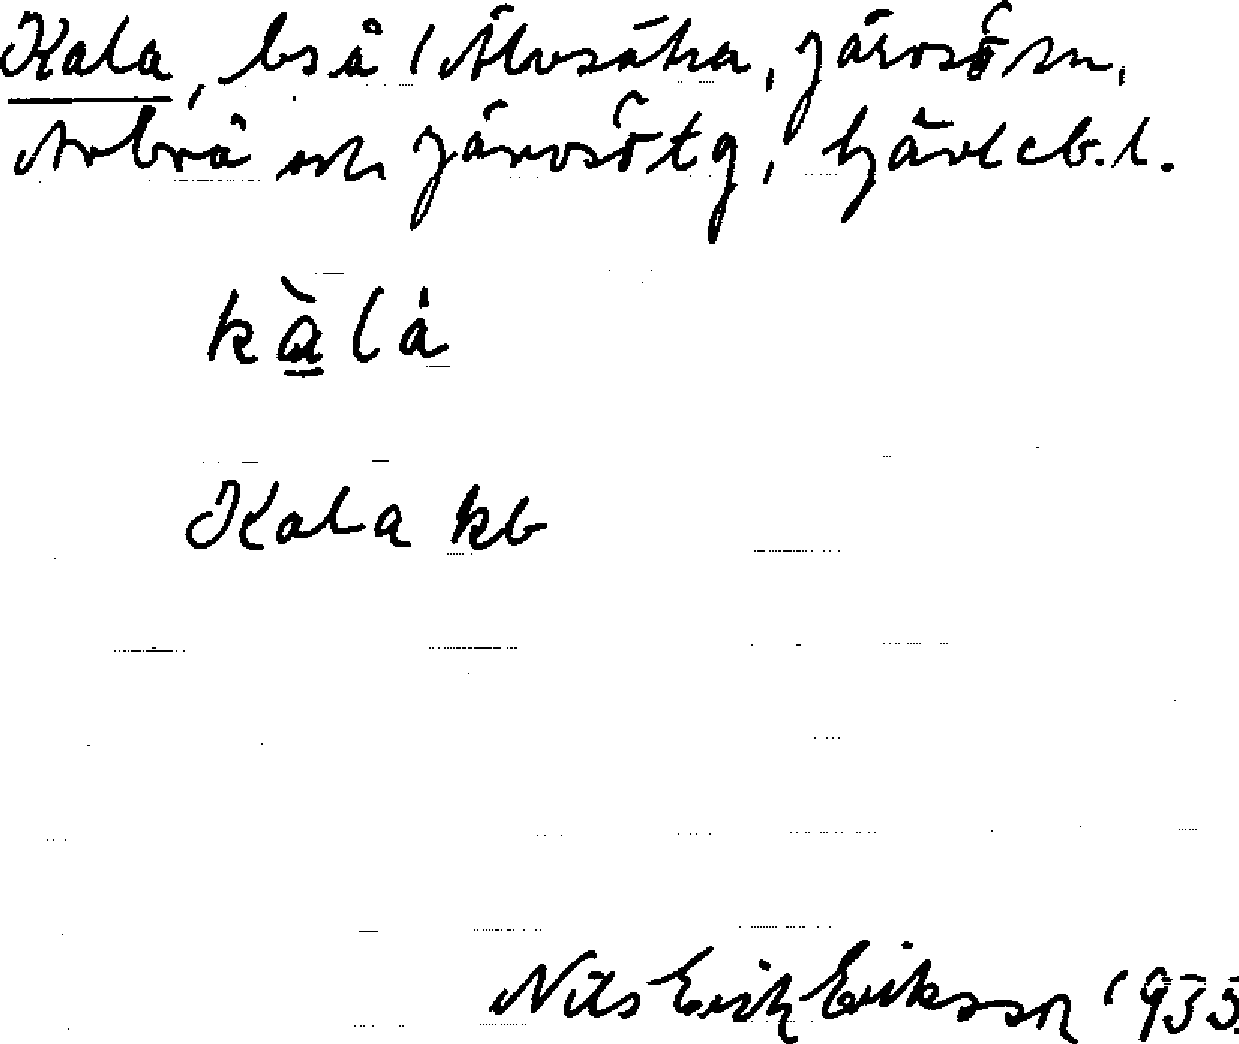 Kala, bs å Älvsätra, Järvsö sn,
Arbrå och Järvsö tg, Gävleb. l.
kàlå
Kala kb
Nils Erik Eriksson 1935.